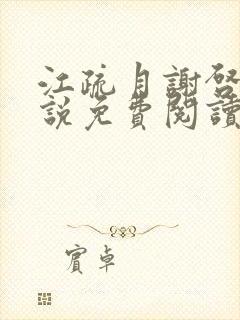 江疏月謝啓
說免費閱讀
賓卓